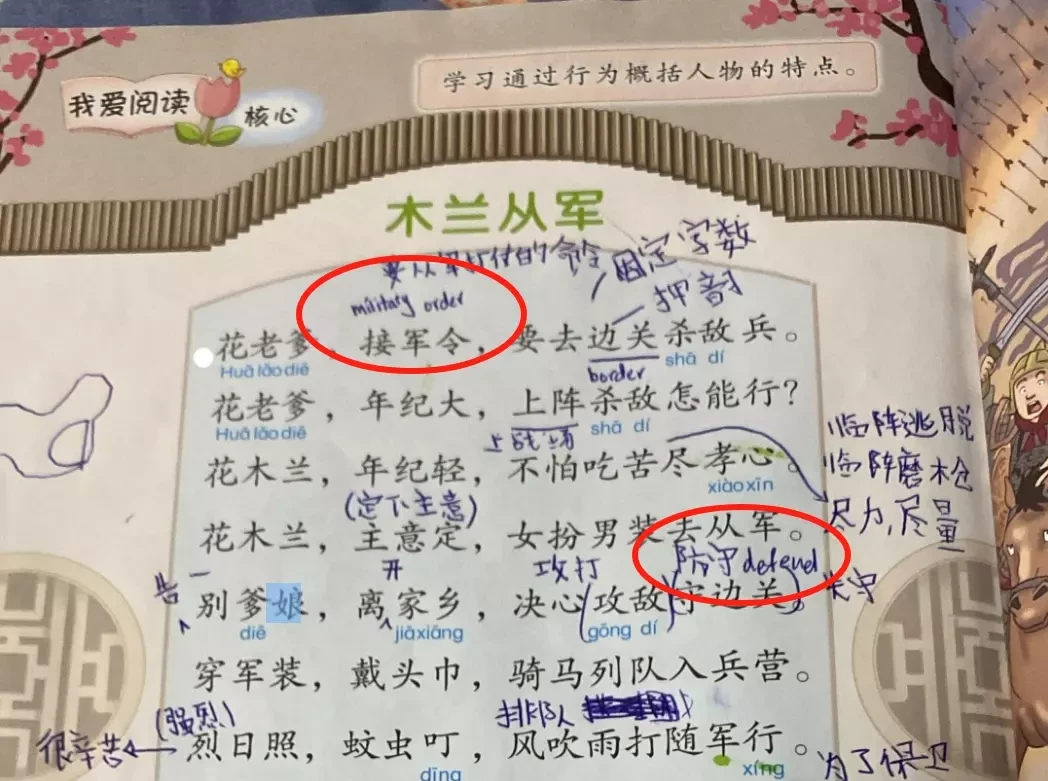 学习通过行为概括人物的特点。
我爱阅读
核心
木兰从军
要从军打付的命令
固定字数
押韵
military order
花老爹，接军令，要去边关杀敌兵。
Huā lǎo diē
shā dí
border
花老爹，年纪大，上阵杀敌怎能行？
Huā lǎo diē
上战场
shā dí
临阵逃脱
花木兰，年纪轻，不怕吃苦尽孝心。
临阵磨枪
xiào xīn
(定下主意)
尽力,尽量
花木兰，主意定，女扮男装去从军。
开
攻打
防守 defend
告
别爹娘，离家乡，决心攻敌守边关。
失守
diē
jiā xiāng
gōng dí
穿军装，戴头巾，骑马列队入兵营。
(强烈)
排队
很辛苦
烈日照，蚊虫叮，风吹雨打随军行。
为了保卫
dīng
xíng